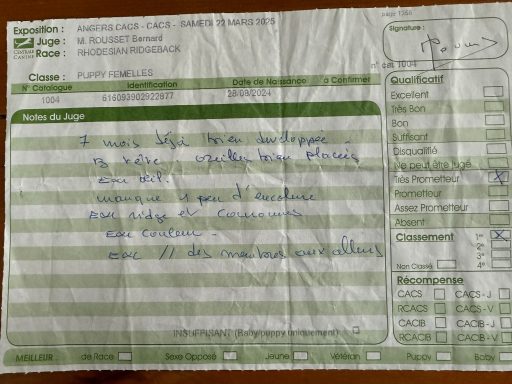 page 1260
Exposition : ANGERS CACS - CACS - SAMEDI 22 MARS 2025
Juge : M. ROUSSET Bernard
Race : RHODESIAN RIDGEBACK
CENTRALE CANINE
Signature :
n° cat 1004
Classe : PUPPY FEMELLES
N° Catalogue Identification Date de Naissance à Confirmer
1004 616093902922877 28/08/2024
Notes du Juge
7 mois déjà bien développée
B tête oreilles bien placées
Exc œil
manque 1 peu d'encolure
Exc ridge et couronnes
Exc couleur
Exc // des membres aux allures
INSUFFISANT (Baby/puppy uniquement)
Qualificatif
Excellent
Très Bon
Bon
Suffisant
Disqualifié
Ne peut être jugé
Très Prometteur X
Prometteur
Assez Prometteur
Absent
Classement 1° X
2°
3°
Non Classé 4°
Récompense
CACS CACS - J
RCACS CACS - V
CACIB CACIB - J
RCACIB CACIB - V
MEILLEUR : de Race Sexe Opposé Jeune Vétéran Puppy Baby